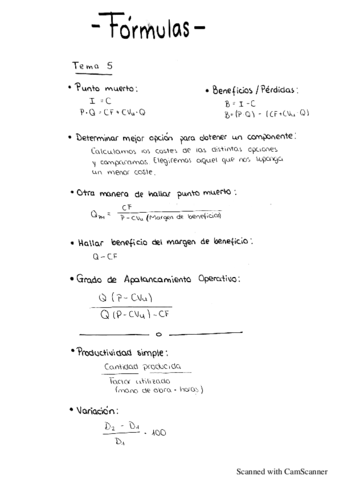 - Fórmulas -
Tema 5
• Punto muerto:
I = C
P·Q = CF + CVu·Q
• Beneficios / Pérdidas:
B = I - C
B = (P·Q) - (CF + CVu Q)
• Determinar mejor opción para obtener un componente:
Calculamos los costes de las distintas opciones
y comparamos. Elegiremos aquel que nos suponga
un menor coste.
• Otra manera de hallar punto muerto:
Qm = CF / P - CVu (Margen de beneficio)
• Hallar beneficio del margen de beneficio:
Q - CF
• Grado de Apalancamiento Operativo:
Q (P - CVu)
Q (P - CVu) - CF
• Productividad simple:
Cantidad producida
Factor utilizado
(mano de obra · horas)
• Variación:
D2 - D1 / D1 · 100
Scanned with CamScanner